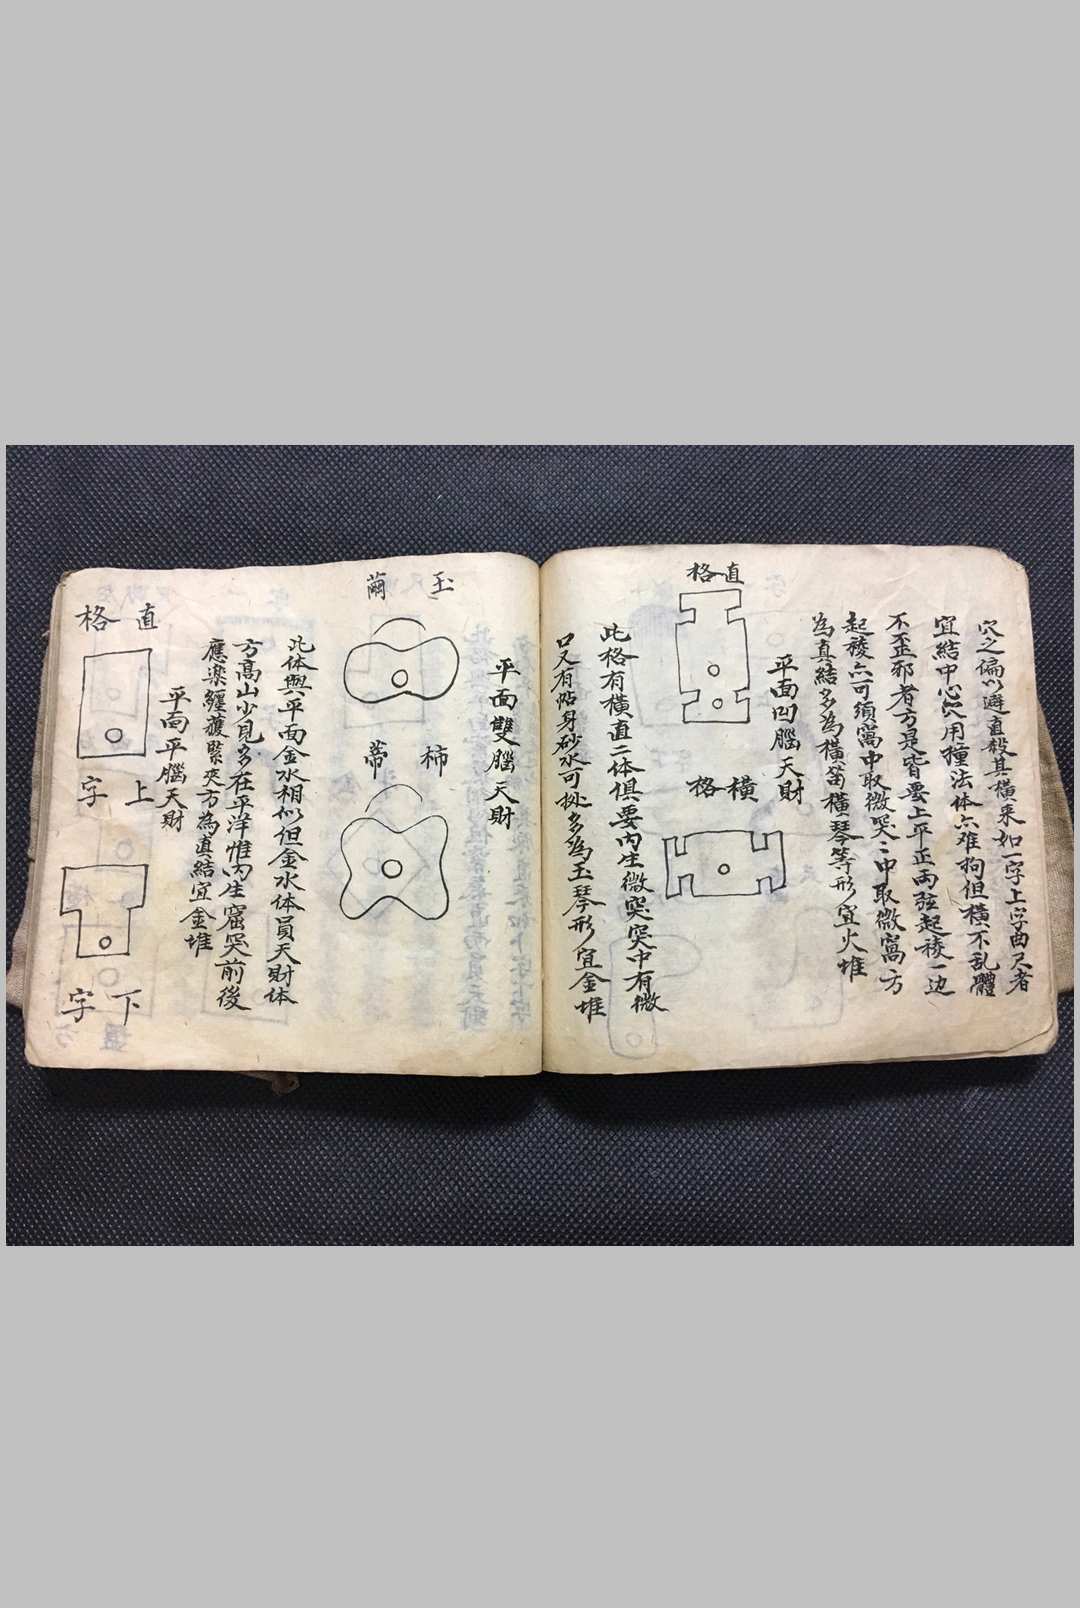 穴之偏以避直殺其橫來如一字上字曲尺者
宜結中心穴用撞法体亦难拘但橫不乱體
不歪邪者方是皆要上平正両弦起稜一边
起稜亦可須窩中取微突〻中取微窩方
為真結多為橫笛橫琴等形宜火堆
平面凹腦天財
直格
橫格
此格有橫直二体俱要内生微突突中有微
口又有帖身砂水可扦多為玉琴形宜金堆
平面雙腦天財
玉繭
柿蒂
此体與平面金水相似但金水体員天財体
方高山少見多在平洋惟内生窟突前後
應樂纏護緊夾方為真結宜金堆
平面平腦天財
直格
上字
下字